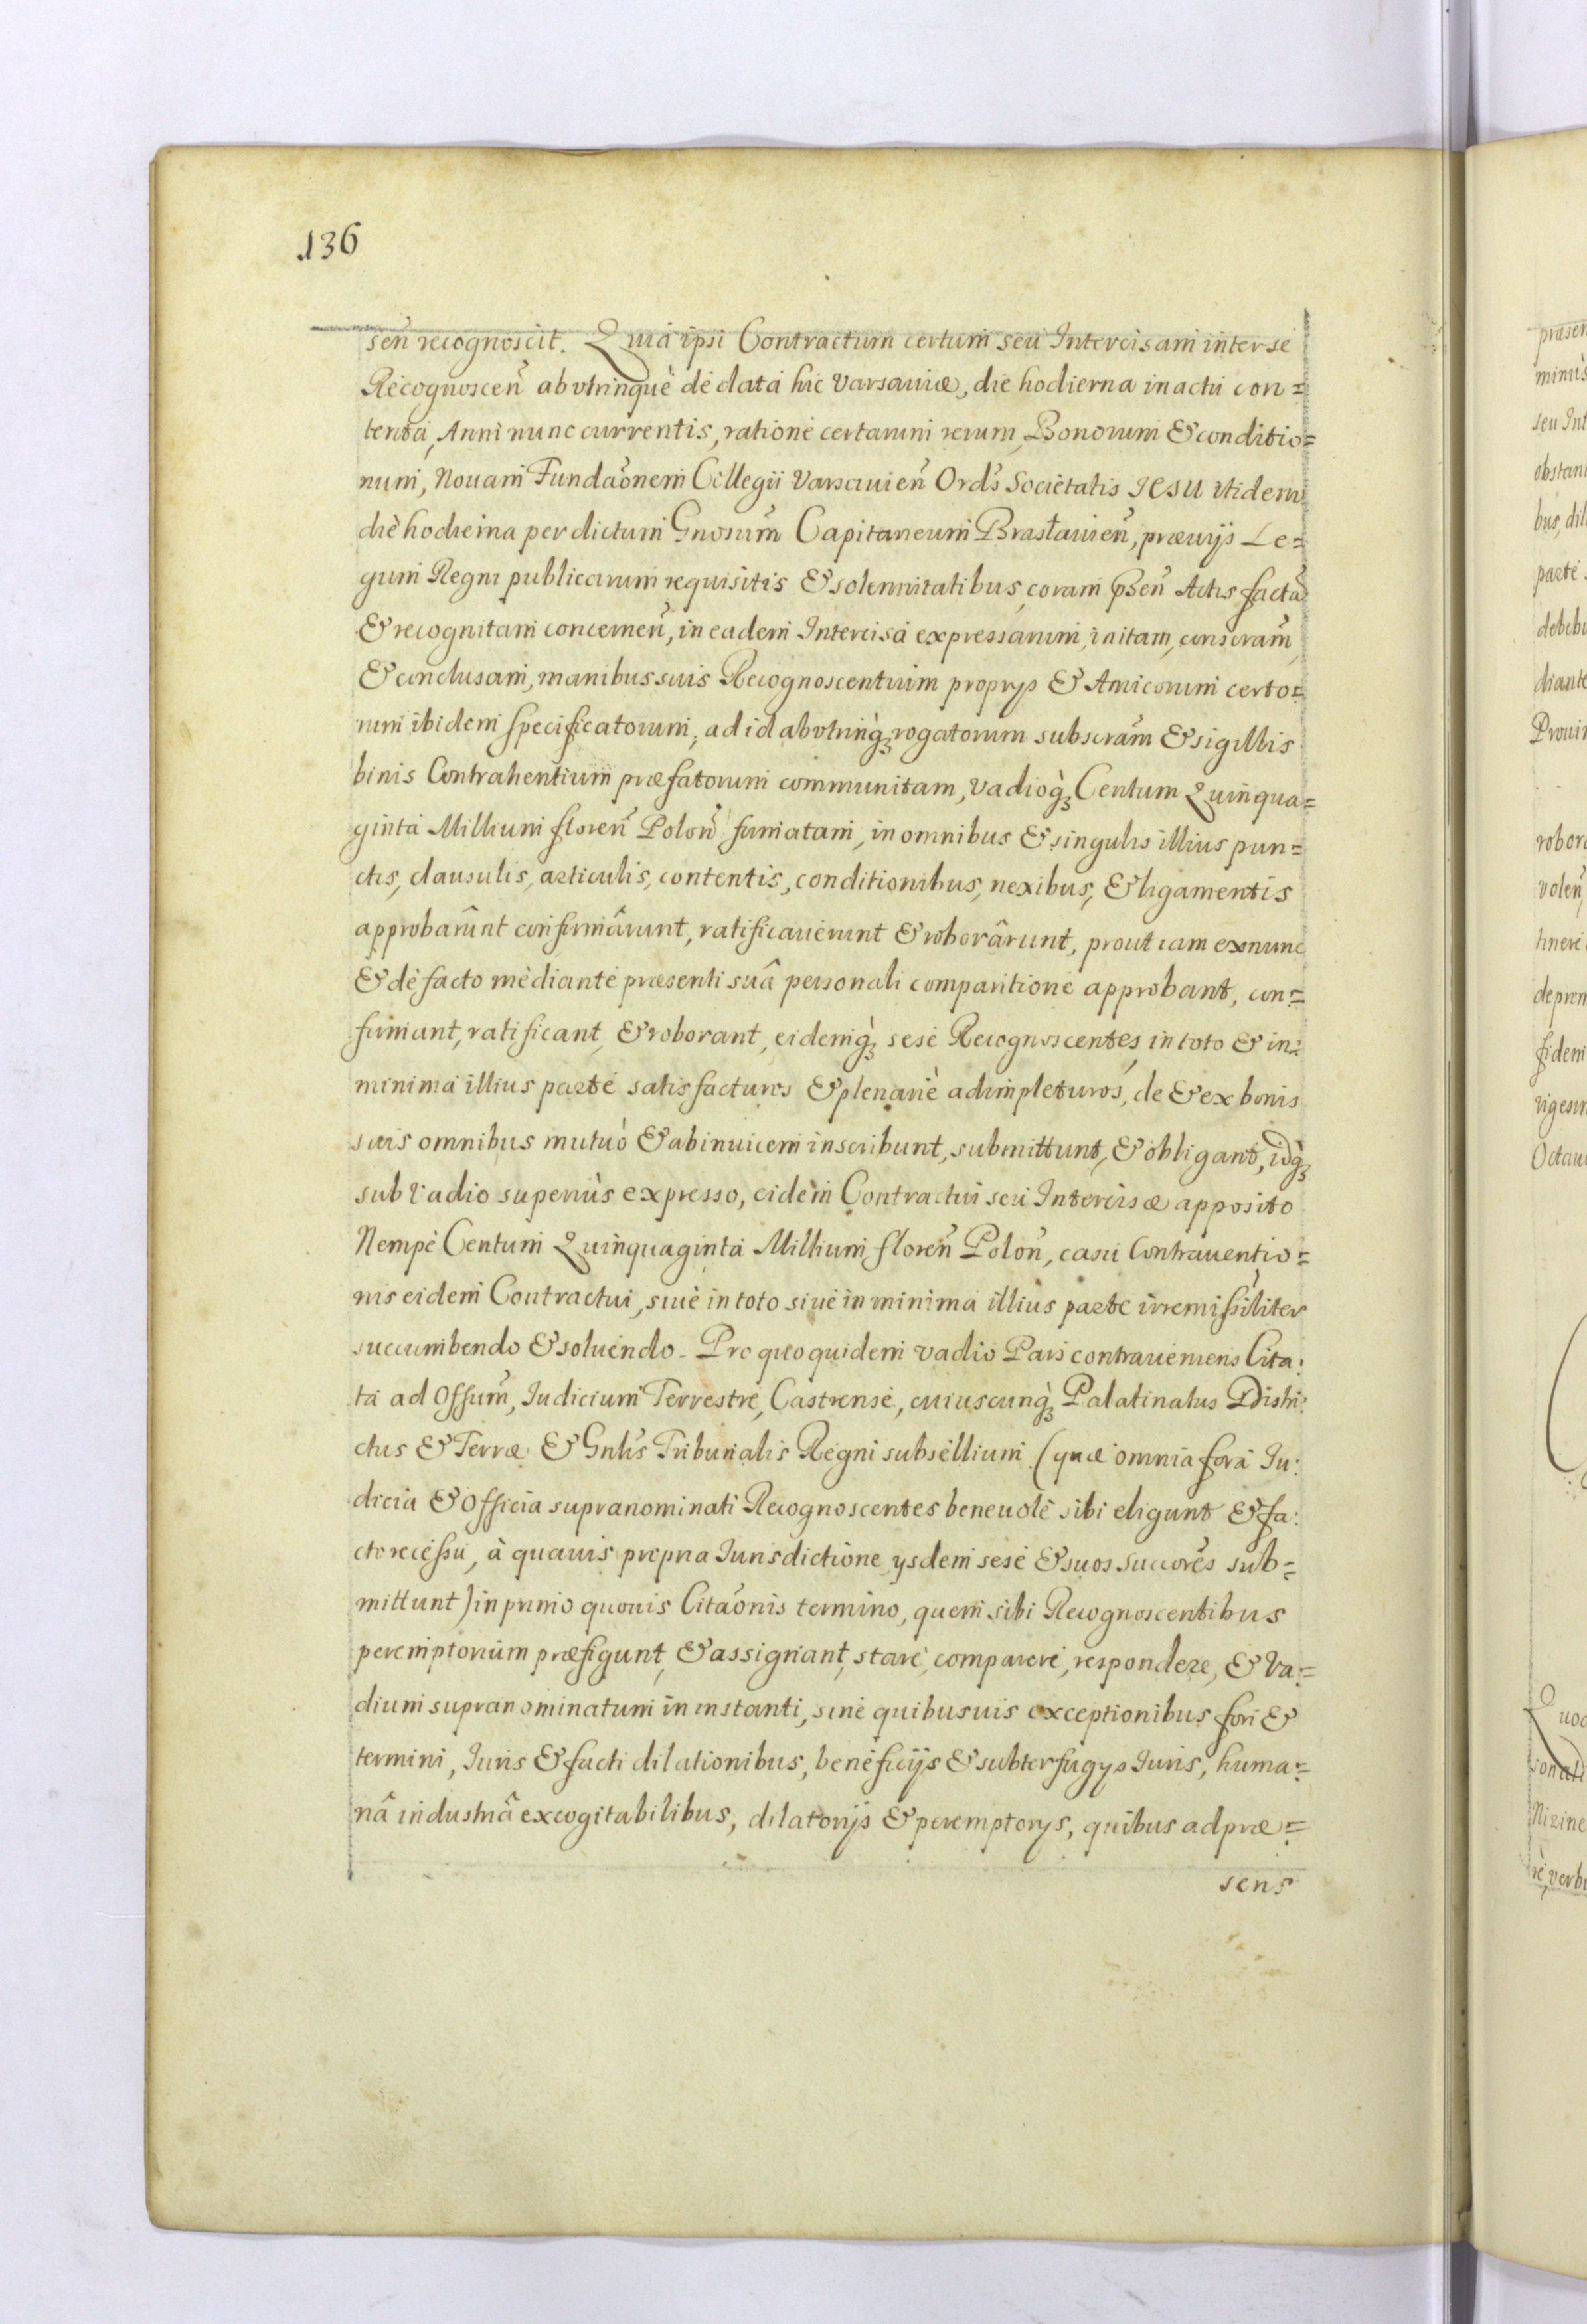 136
señ recognoscit. Quia ipsi Contractum certum seu Intercisam inter se
Recognosceñ ab vtrinque de data hic Varsauiæ, die hodierna in actu con=
tenta, Anni nunc currentis, ratione certarum rerum, Bonorum & conditio=
num, Nouam Fundaõnem Collegii Varsauieñ Ords̃ Societatis JESU itidem
die hodierna per dictum Gnosum̃ Capitaneum Braslauieñ, præuijs Le=
gum Regni publicarum requisitis & solennitatibus, coram p̃señ Actis factã
& recognitam concerneñ, in eadem Intercisa expressarum, initam, conscram̃,
& conclusam, manibus suis Recognoscentium proprys & Amicorum certo=
rum ibidem specificatorum, ad id ab vtrinq̀ꝫ rogatorum subscram̃ & sigillis
binis Contrahentium præfatorum communitam, vadioq̀ꝫ Centum Quinqua=
ginta Millium floreñ Poloñ firmatam, in omnibus & singulis illius pun=
ctis, clausulis, articulis, contentis, conditionibus, nexibus, & ligamentis
approbârunt confirmârunt, ratificauerunt & roborârunt, prout iam ex nunc
& de facto mediante præsenti suâ personali comparitione approbant, con=
firmant, ratificant, & roborant, eidemq̀ꝫ sese Recognoscentes, in toto & in=
minima illius parte satisfacturos & plenariè adimpleturos, de & ex bonis
suis omnibus mutuò & abinuicem inscribunt, submittunt, & obligant, idq̀ꝫ
sub Vadio superiùs expresso, eidem Contractui seu Intercisæ apposito
Nempè Centum Quinquaginta Millium floreñ Poloñ, casu Contrauentio=
nis eidem Contractui, siue in toto siue in minima illius parte irremissibiliter
succumbendo & soluendo. Pro quo quidem vadio Pars contraueniens Cita:
ta ad Offum̃, Iudicium Terrestre, Castrense, cuiuscunq̀ꝫ Palatinatus Distri:
ctus & Terræ & Gnlis̃ Tribunalis Regni subsellium (quæ omnia fora Iu:
dicia & Officia supranominati Recognoscentes beneuolè sibi eligunt & fa:
cto recessu, à quauis propria Iurisdictione ysdem sese & suos succorẽs sub=
mittunt) in primo quouis Citaõnis termino, quem sibi Recognoscentibus
peremptorium præfigunt, & assignant, stare, comparere, respondere, & Va=
dium supranominatum in instanti, sine quibusuis exceptionibus fori &
termini, Iuris & facti dilationibus, beneficijs & subterfugys Iuris, huma=
nâ industriâ excogitabilibus, dilatorijs & peremptorys, quibus ad præ=
sens